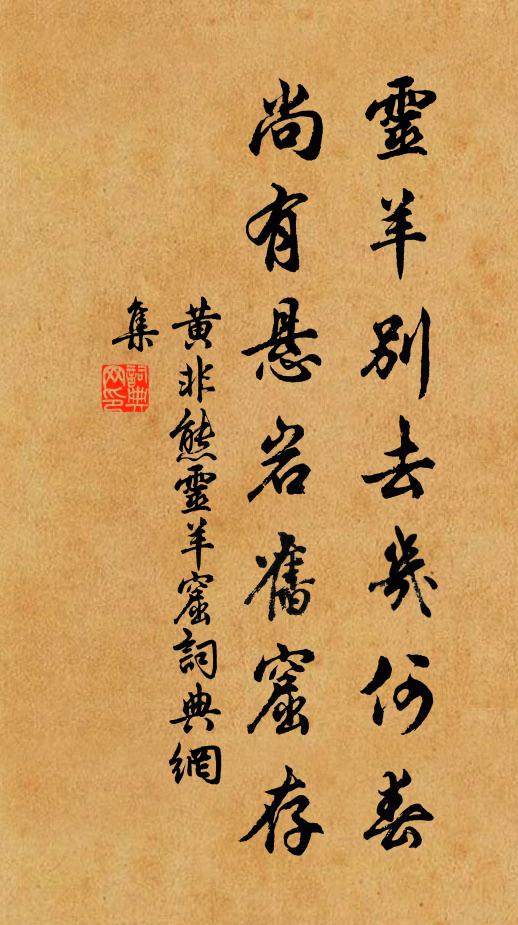 靈羊別去幾何春
尚有懸岩舊窟存
黃非熊靈羊窟詞典網
集
詞典網印